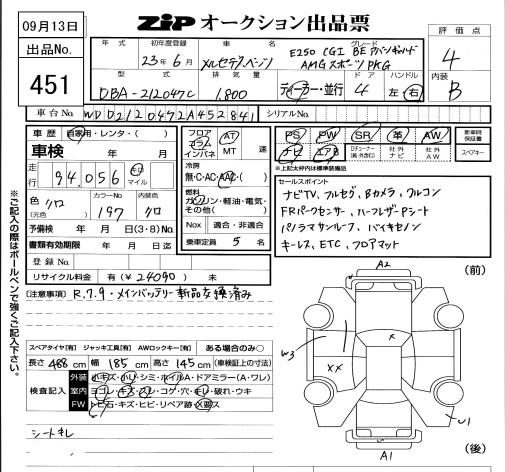 09月13日
ZIP オークション出品票
出品No.
451
年式 初年度登録 車名 グレード 評価点
23年6月 メルセデスベンツ E250 CGI BE アバンギャルド AMGスポーツPKG 4
型式 排気量 ドア ハンドル 内装
DBA-212047C 1,800 ディーラー・並行 4 左・右 B
車台No. WDD2120472A452841 シリアルNo.
車歴 自家用・レンタ・( )
車検 年 月
走行 94,056 km マイル
色 (元色) クロ カラーNo. 197 内装色 クロ
予備検 年 月 日(3・8)No.
書類有効期限 年 月 日迄
登録No.
リサイクル料金 有(¥24090) 未
フロア コラム インパネ AT MT 速
冷房
無・C・AC・AAC・( )
燃料
ガソリン・軽油・電気・その他( )
Nox 適合・非適合
乗車定員 5 名
PS PW SR 革 AW 新車時保証書
ナビ エアB Dチューナー(純・外含む) 社外ナビ 社外AW スペアキー
※上記太枠内は標準装備品
セールスポイント
ナビTV、フルセグ、Bカメラ、クルコン
FRパークセンサー、ハーフレザーPシート
パノラマサンルーフ、バイキセノン
キーレス、ETC、フロアマット
※ご記入の際はボールペンで強くご記入下さい。
[注意事項] R,7.9・メインバッテリー新品交換済み
スペアタイヤ[有] ジャッキ工具[有] AWロックキー[有] ある場合のみ○
長さ 488 cm 幅 185 cm 高さ 145 cm (車検証上の寸法)
検査記入
外装 小キズ・小凹・シミ・ホイルA・ドアミラー(A・ワレ)
室内 ヨゴレ・キズ・スレ・コゲ・穴・キレ・破れ・ウキ
FW トビ石・キズ・ヒビ・リペア跡・X要ス
シートキレ
(前)
A2
W3
X
XX
U1
A1
(後)